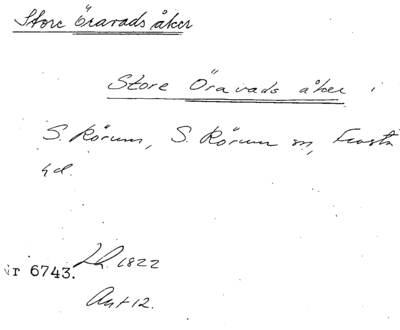 Store Öravads åker
Store Öravads åker i
S. Rörum, S. Rörum sn, Frosta
hd.
Nr 6743. Lh. 1822
Akt 12.